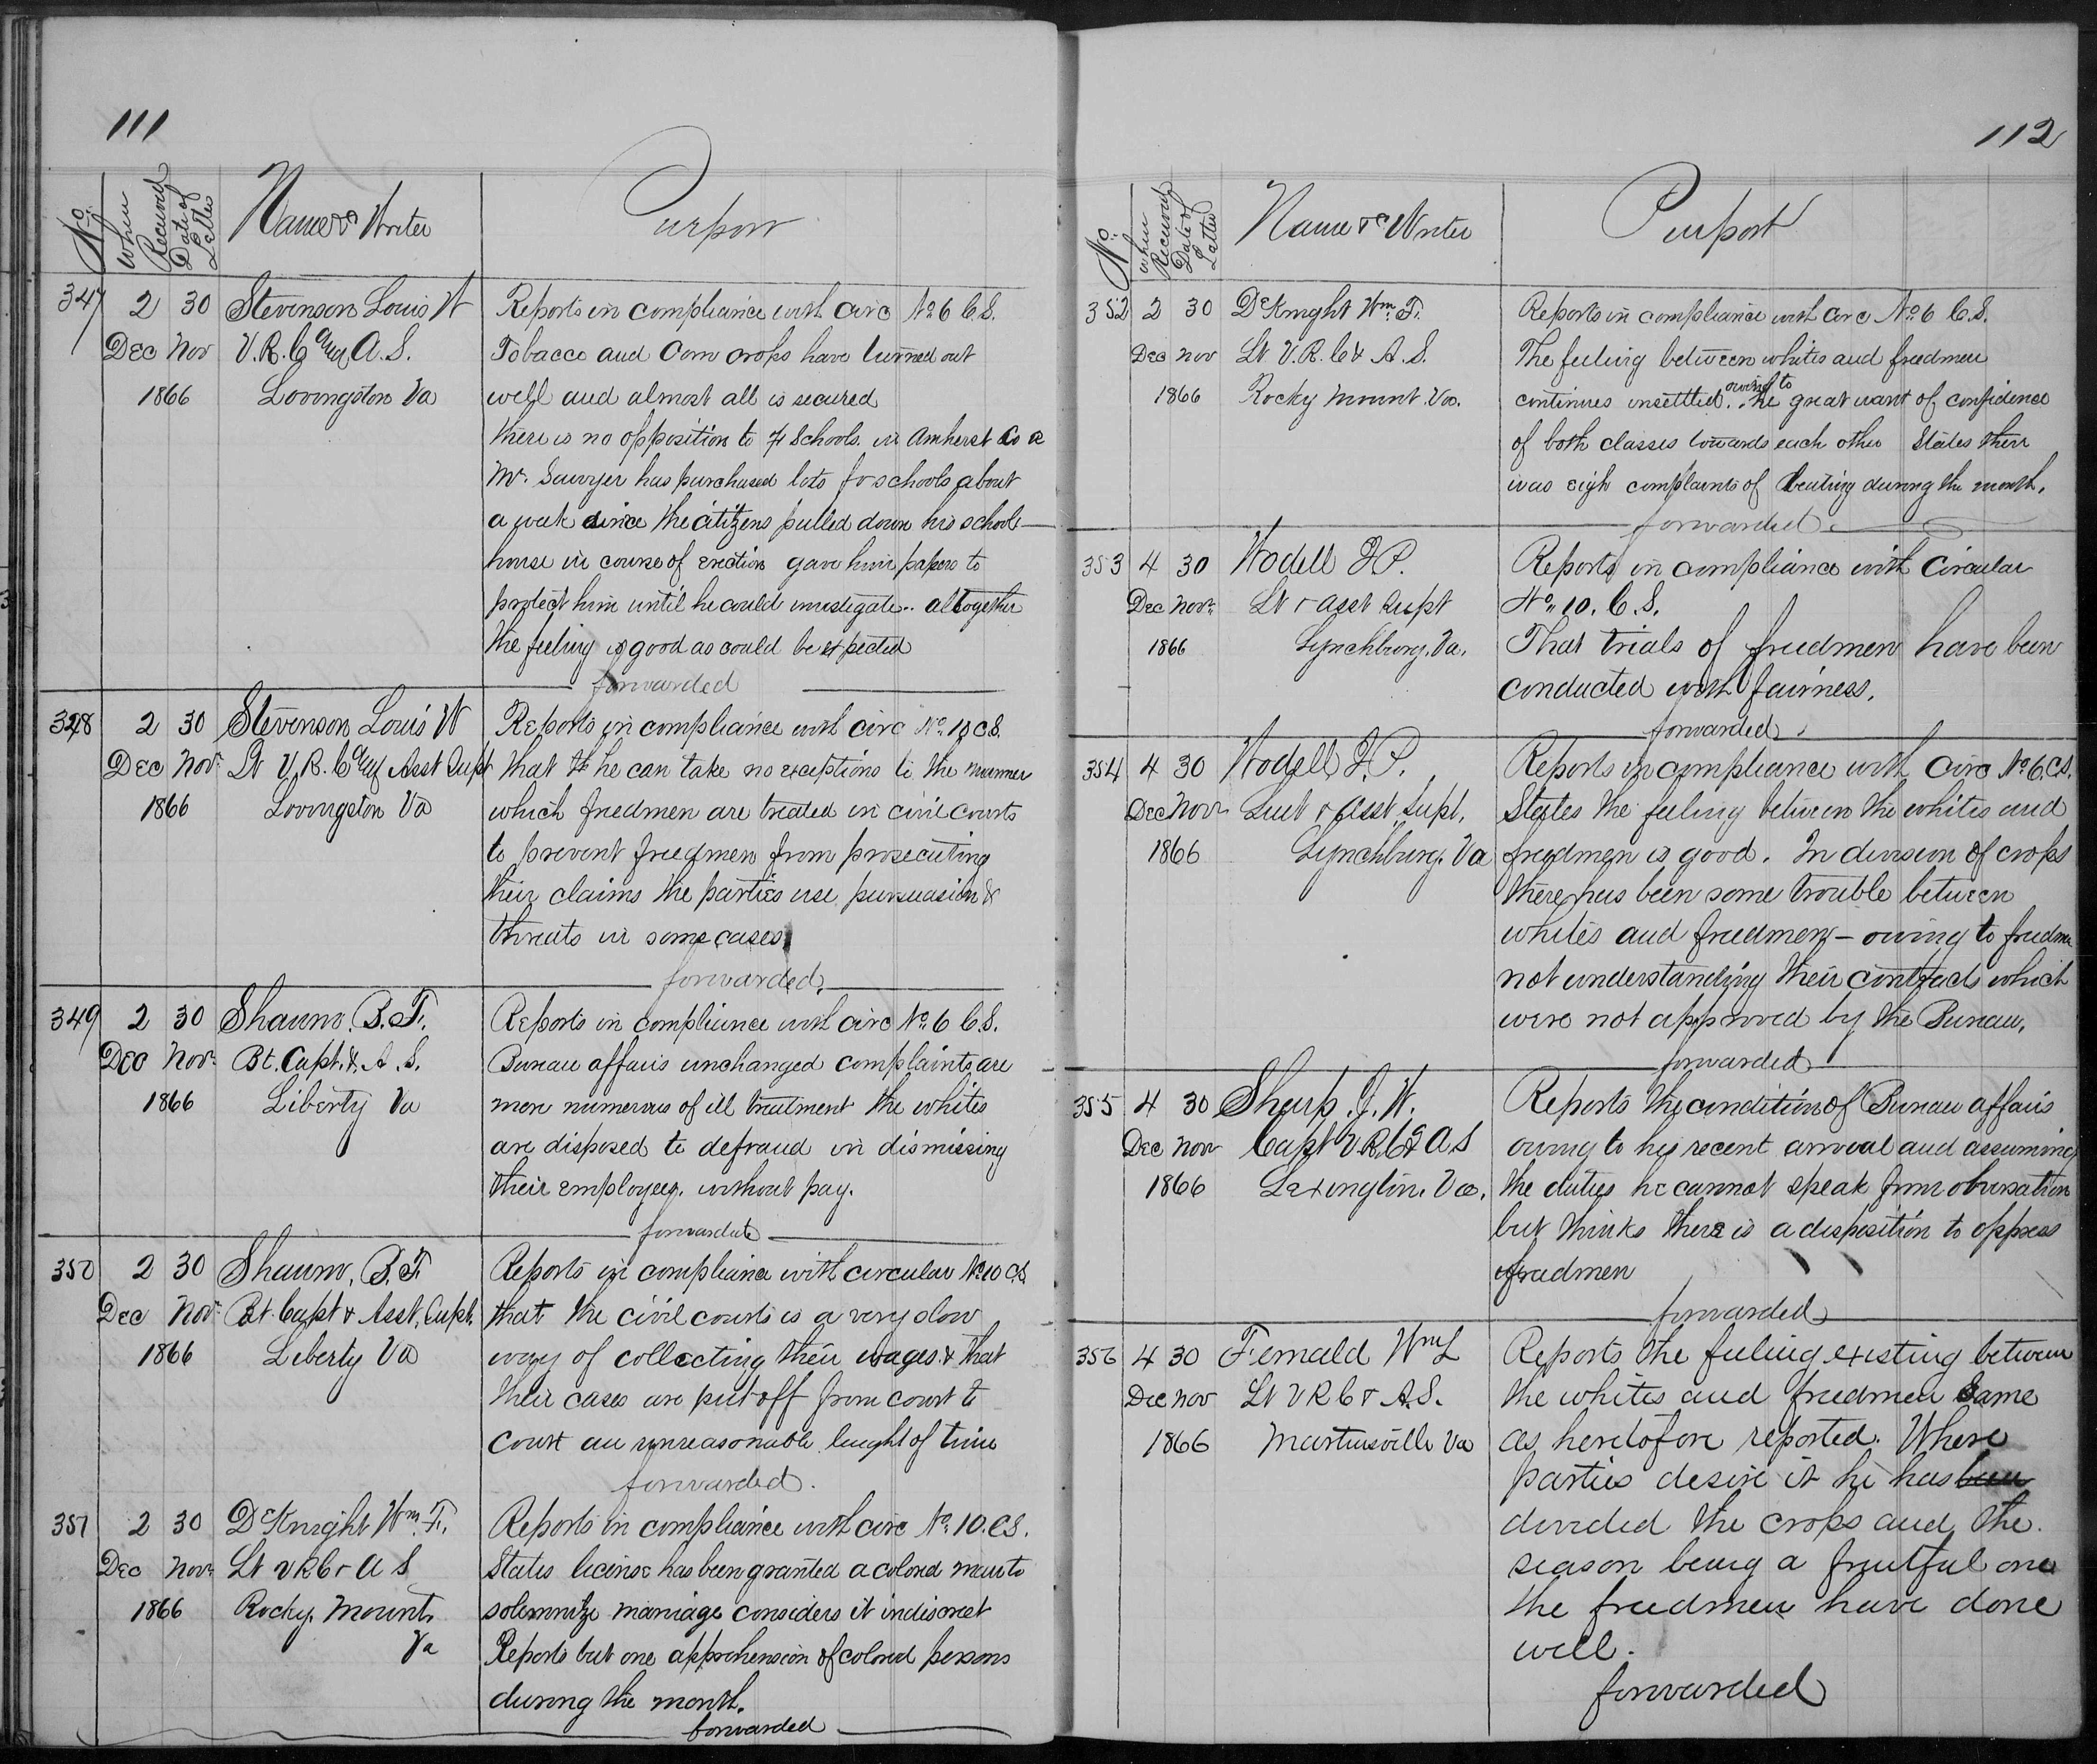 111
No. When Received Date of Letter Name & Writer Purport
347 2 30 Stevenson Louis W Reports in compliance with circ No 6 C.S.
Dec Nov V.R.C. A.S. Tobacco and Corn crops have turned out
1866 Lovingston Va well and almost all is secured
there is no opposition to F Schools. in Amherst Co a
Mr. Sawyer has purchased lots for schools about
a week since the citizens pulled down his school
house in course of erection gave him papers to
protect him until he could investigate.. altogether
the feeling is good as could be expected
forwarded
328 2 30 Stevenson Louis W Reports in compliance with circ No. 10 C.S.
Dec Nov. Lt V.R.C. Asst Supt that he can take no exceptions to the manner
1866 Lovingston Va which freedmen are treated in civil courts
to prevent freedmen from prosecuting
their claims the parties use pursuasion &
threats in some cases
forwarded.
349 2 30 Shaum. B.F. Reports in compliance with circ No. 6 C.S.
Dec Nov. Bt. Capt. & A.S. Bureau affairs unchanged complaints are
1866 Liberty Va more numerous of ill treatment the whites
are disposed to defraud in dismissing
their employees. without pay.
forwarded
350 2 30 Shaum, B.F. Reports in compliance with circular No. 10 C.S.
Dec Nov. Bt. Capt & Asst. Supt. that the civil courts is a very slow
1866 Liberty Va way of collecting their wages. & that
their cases are put off from court to
Court an unreasonable lenght of time
forwarded.
351 2 30 DeKnight Wm. F. Reports in compliance with circ No. 10. C.S.
Dec Nov. Lt VRC & A S States license has been granted a colored man to
1866 Rocky Mount, solemnize marriage considers it indiscreet
Va Reports but one apprehension of colored persons
during the month.
forwarded
112
No. When Received Date of Letter Name & Writer Purport
352 2 30 DeKnight Wm. F. Reports in compliance with circ No. 6 C.S.
Dec Nov Lt. V.R.C. & A.S. The feeling between whites and freedmen
1866 Rocky Mount. Va. continues unsettled. owing to the great want of confidence
of both classes towards each other States their
was eigh complaints of beating during the month.
forwarded.
353 4 30 Wodell F.P. Reports in compliance with Circular
Dec Nov. Lt & Asst Supt No. 10. C.S.
1866 Lynchburg, Va. That trials of freedmen have been
conducted with fairness.
forwarded.
354 4 30 Wodell F.P. Reports in compliance with Circ No. 6. C.S.
Dec Nov Lieut & Asst Supt. States the feeling between the whites and
1866 Lynchburg, Va freedmen is good. In division of crops
there has been some trouble between
whites and freedmen - owing to freedmen
not understanding their contracts which
were not approved by the Bureau.
forwarded
355 4 30 Sharp. J.W. Reports the condition of Bureau affairs
Dec Nov Capt V.R.C. & A S owing to his recent arrival and assuming
1866 Lexington. Va. the duties he cannot speak from observation
but thinks there is a disposition to oppress
freedmen
forwarded
356 4 30 Fernald Wm L Reports the feeling existing between
Dec Nov Lt VRC & A.S. the whites and freedmen same
1866 Martinsville Va as heretofore reported. Where
parties desire it he has been
divided the crops and the
season being a fruitful one
the freedmen have done
well.
forwarded